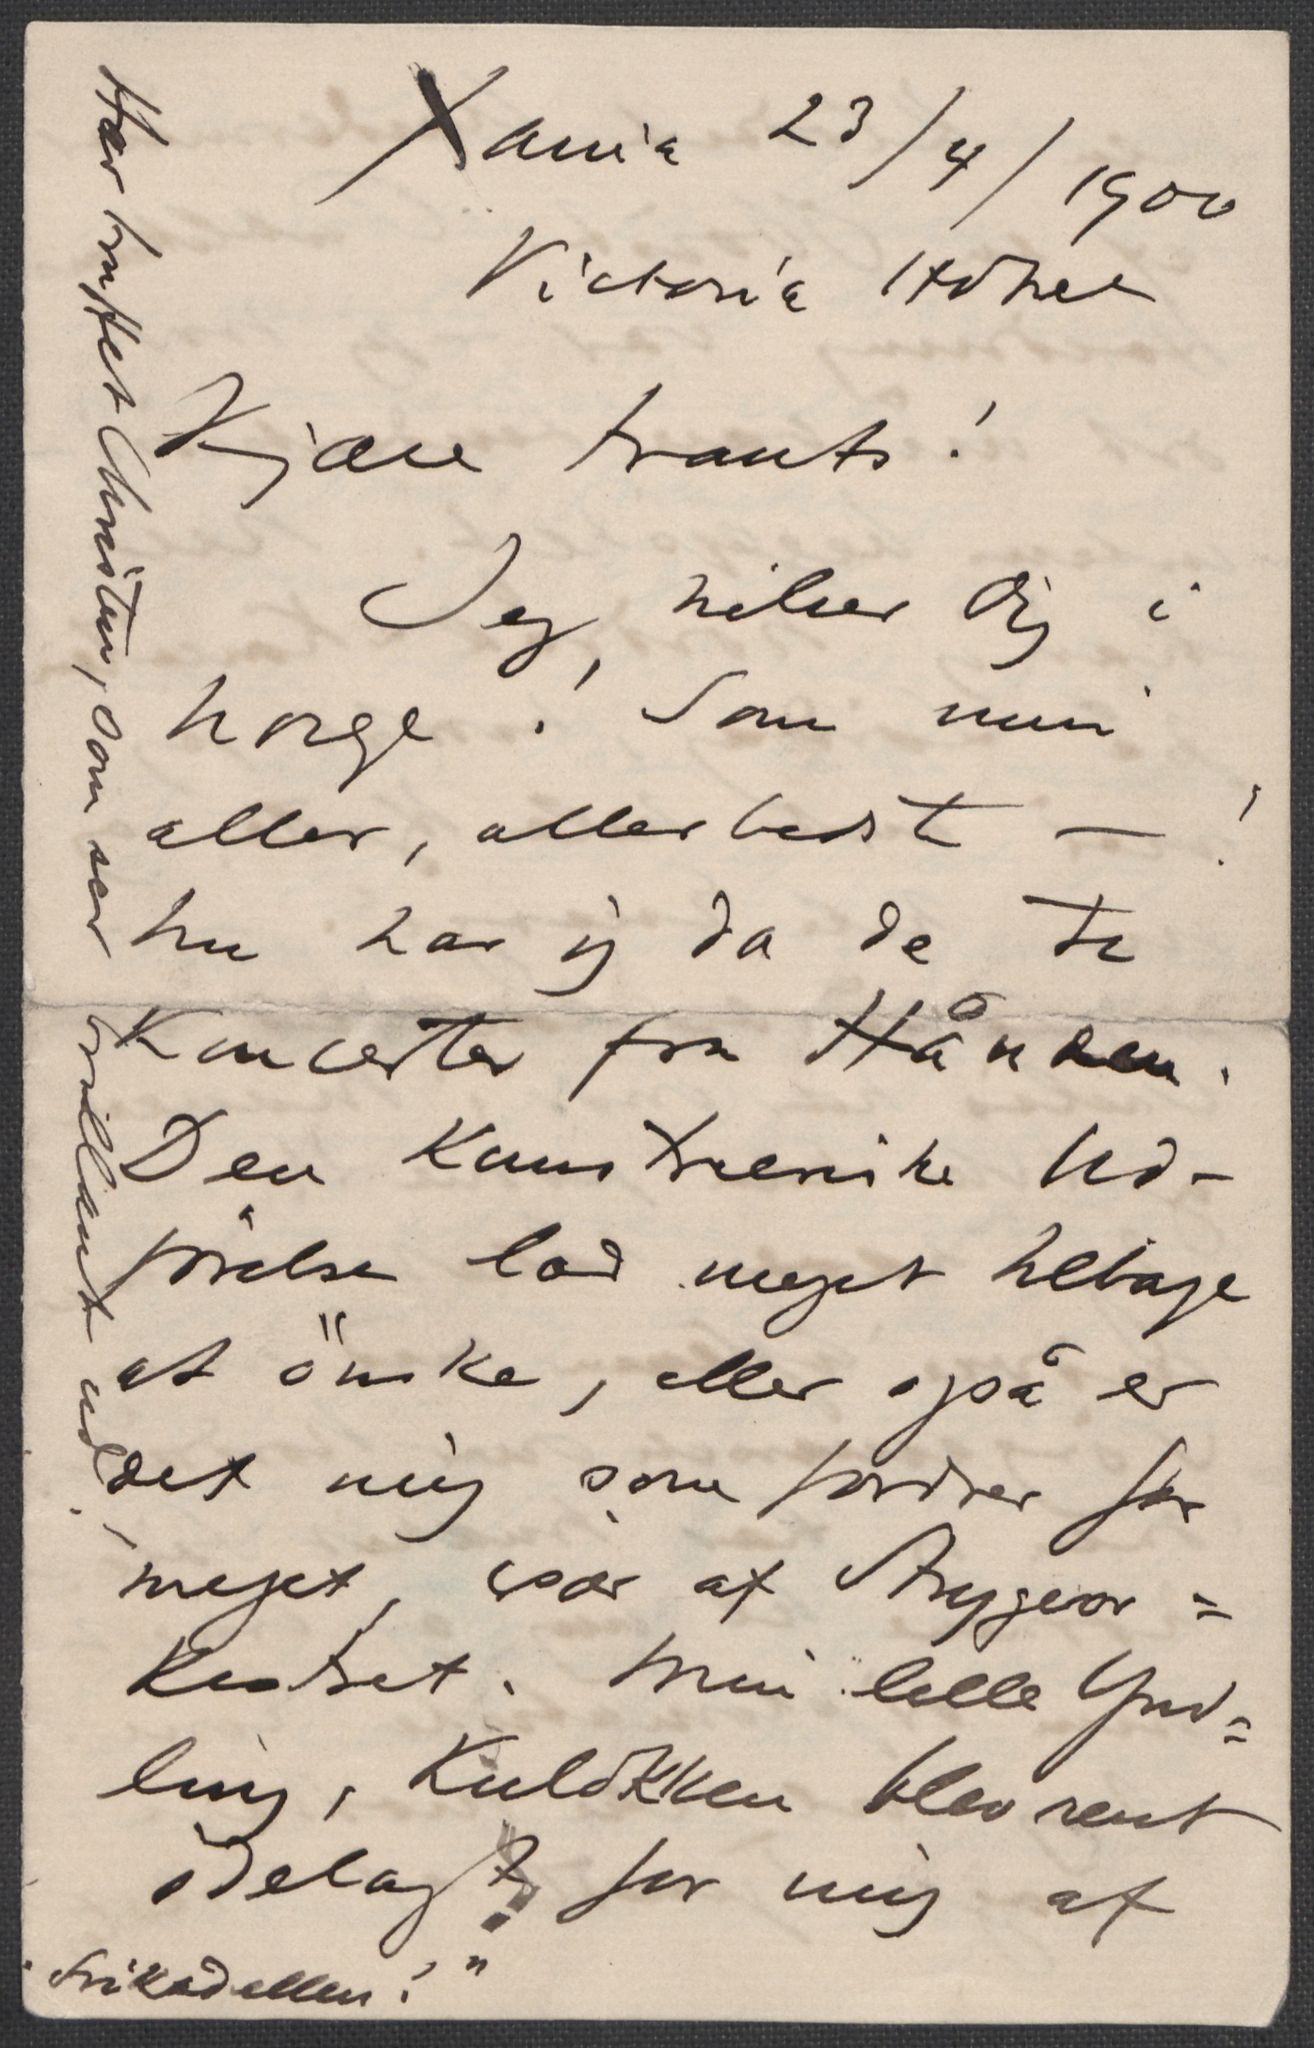 Xania 23/4/1900
Victoria Hôtel
Kjære Frants!
Jeg hilser Dig i
Norge! Som min
aller, allerbedste —!
Nu har jeg da de to
Koncerter fra Hånden.
Den kunstneriske Ud-
förelse lod meget tilbage
at önske, eller også er
det mig som fordrer for
meget, især af Strygeor=
kestret. Min lille Ynd=
ling, Kulokken blev rent
ödelagt for mig af
"Frikadellen!"
Har truffet Christen, som ser
brillant ud!